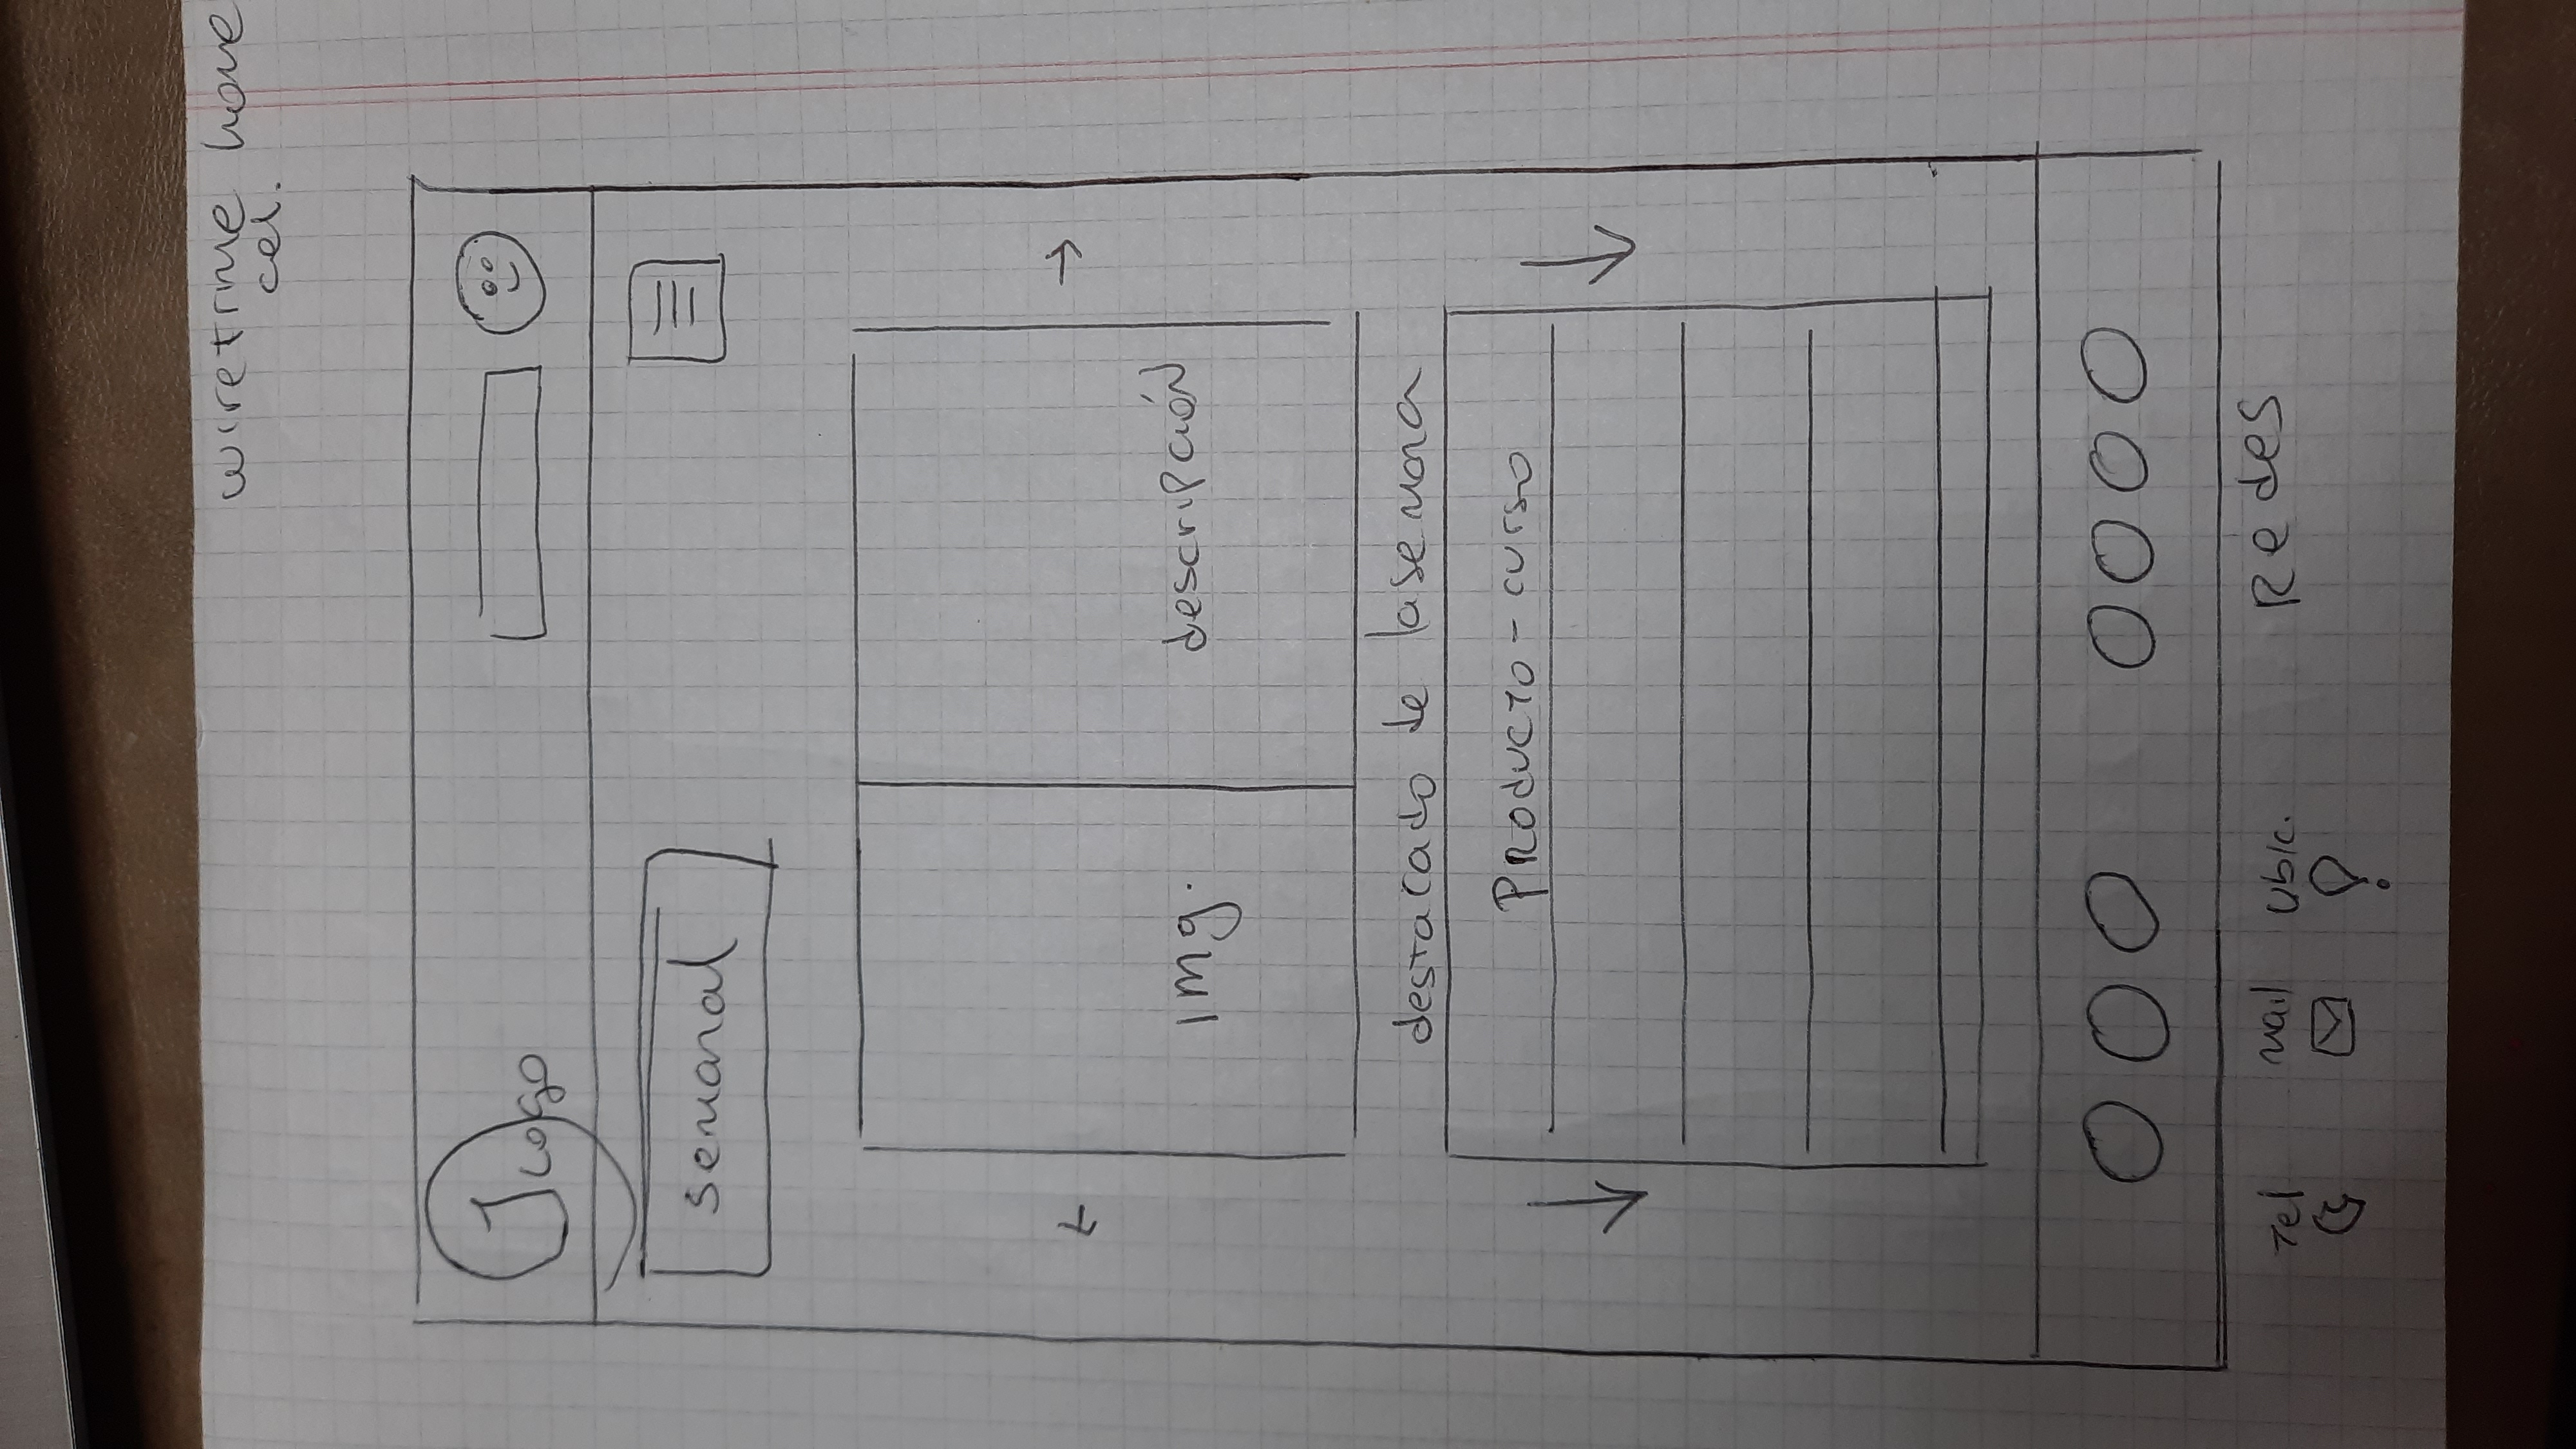 wiretrme home
cel.
Logo
semanal
img.
descripción
destacado de la semana
Producto - curso
Tel
mail
Ubic.
Redes